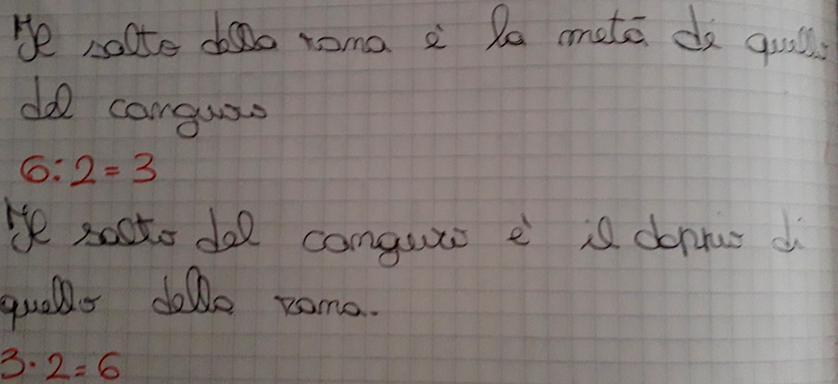 Il salto della rana è la metà di quello
del canguro
6:2=3
Il salto del canguro è il doppio di
quello della rana.
3·2=6